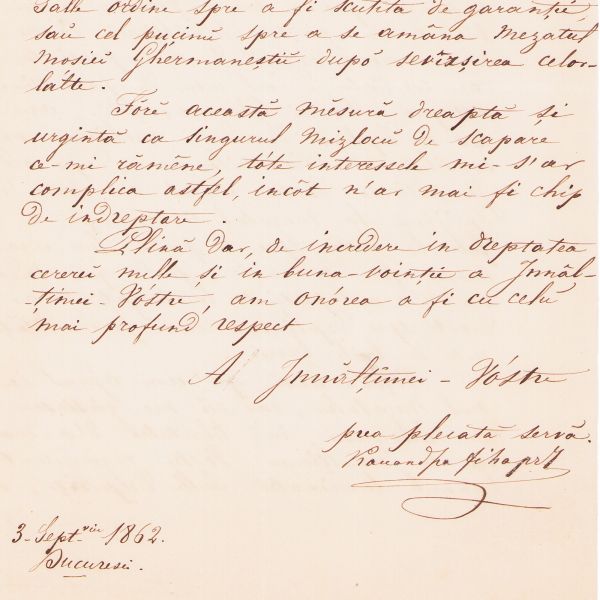 Salle ordine spre a fi scutită de garanție,
sau cel pucinŭ spre a se amâna Mezatul
Mosiei Ghermaneștiĭ după sevîrșirea celor-
lâtte.
Fóră această mĕsură dreaptă și
urgintă ca singurul Mizlocŭ de scapare
ce-mi rămâne, tóte interessele mi-s'ar
complica astfel, incôt n'ar mai fi chip
de indreptare.
Plină dar, de incridere in dreptatea
cererei melle și in buna-voinție a Innăl-
țimei-Vóstre, am onórea a fi cu celŭ
mai profund respect
A Innălțimei-Vóstre
prea plecată servă.
3-Septvrie 1862.
Bucuresci.